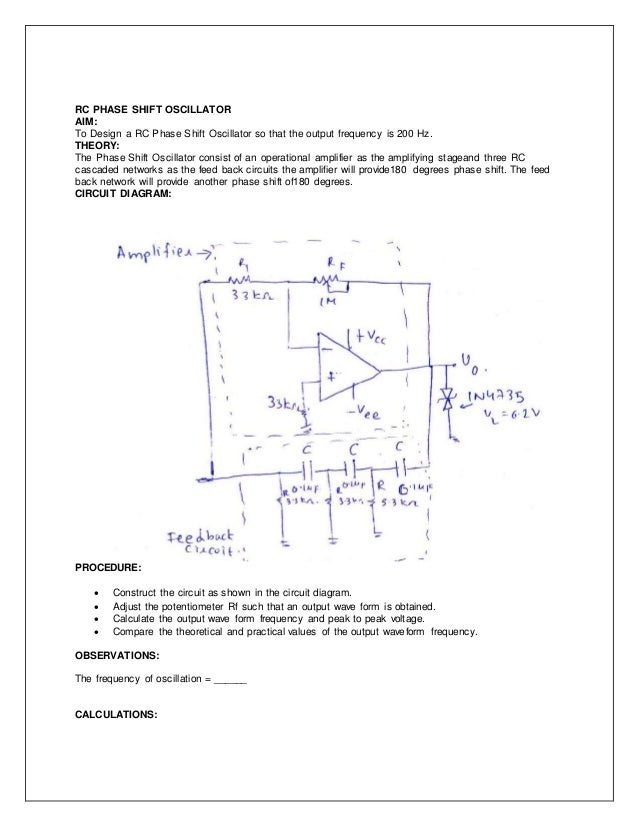 RC PHASE SHIFT OSCILLATOR
AIM:
To Design a RC Phase Shift Oscillator so that the output frequency is 200 Hz.
THEORY:
The Phase Shift Oscillator consist of an operational amplifier as the amplifying stageand three RC
cascaded networks as the feed back circuits the amplifier will provide180 degrees phase shift. The feed
back network will provide another phase shift of180 degrees.
CIRCUIT DIAGRAM:
Amplifier →
R1
RF
33kΩ
1M
+Vcc
-
+
Vo.
33kΩ
-Vee
1N4735
Vz=6.2V
C C C
R 0.1µF R 0.1µF R 0.1µF
3.3kΩ. 3.3kΩ 3.3kΩ
Feedback
Circuit.
PROCEDURE:
• Construct the circuit as shown in the circuit diagram.
• Adjust the potentiometer Rf such that an output wave form is obtained.
• Calculate the output wave form frequency and peak to peak voltage.
• Compare the theoretical and practical values of the output waveform frequency.
OBSERVATIONS:
The frequency of oscillation = ______
CALCULATIONS: